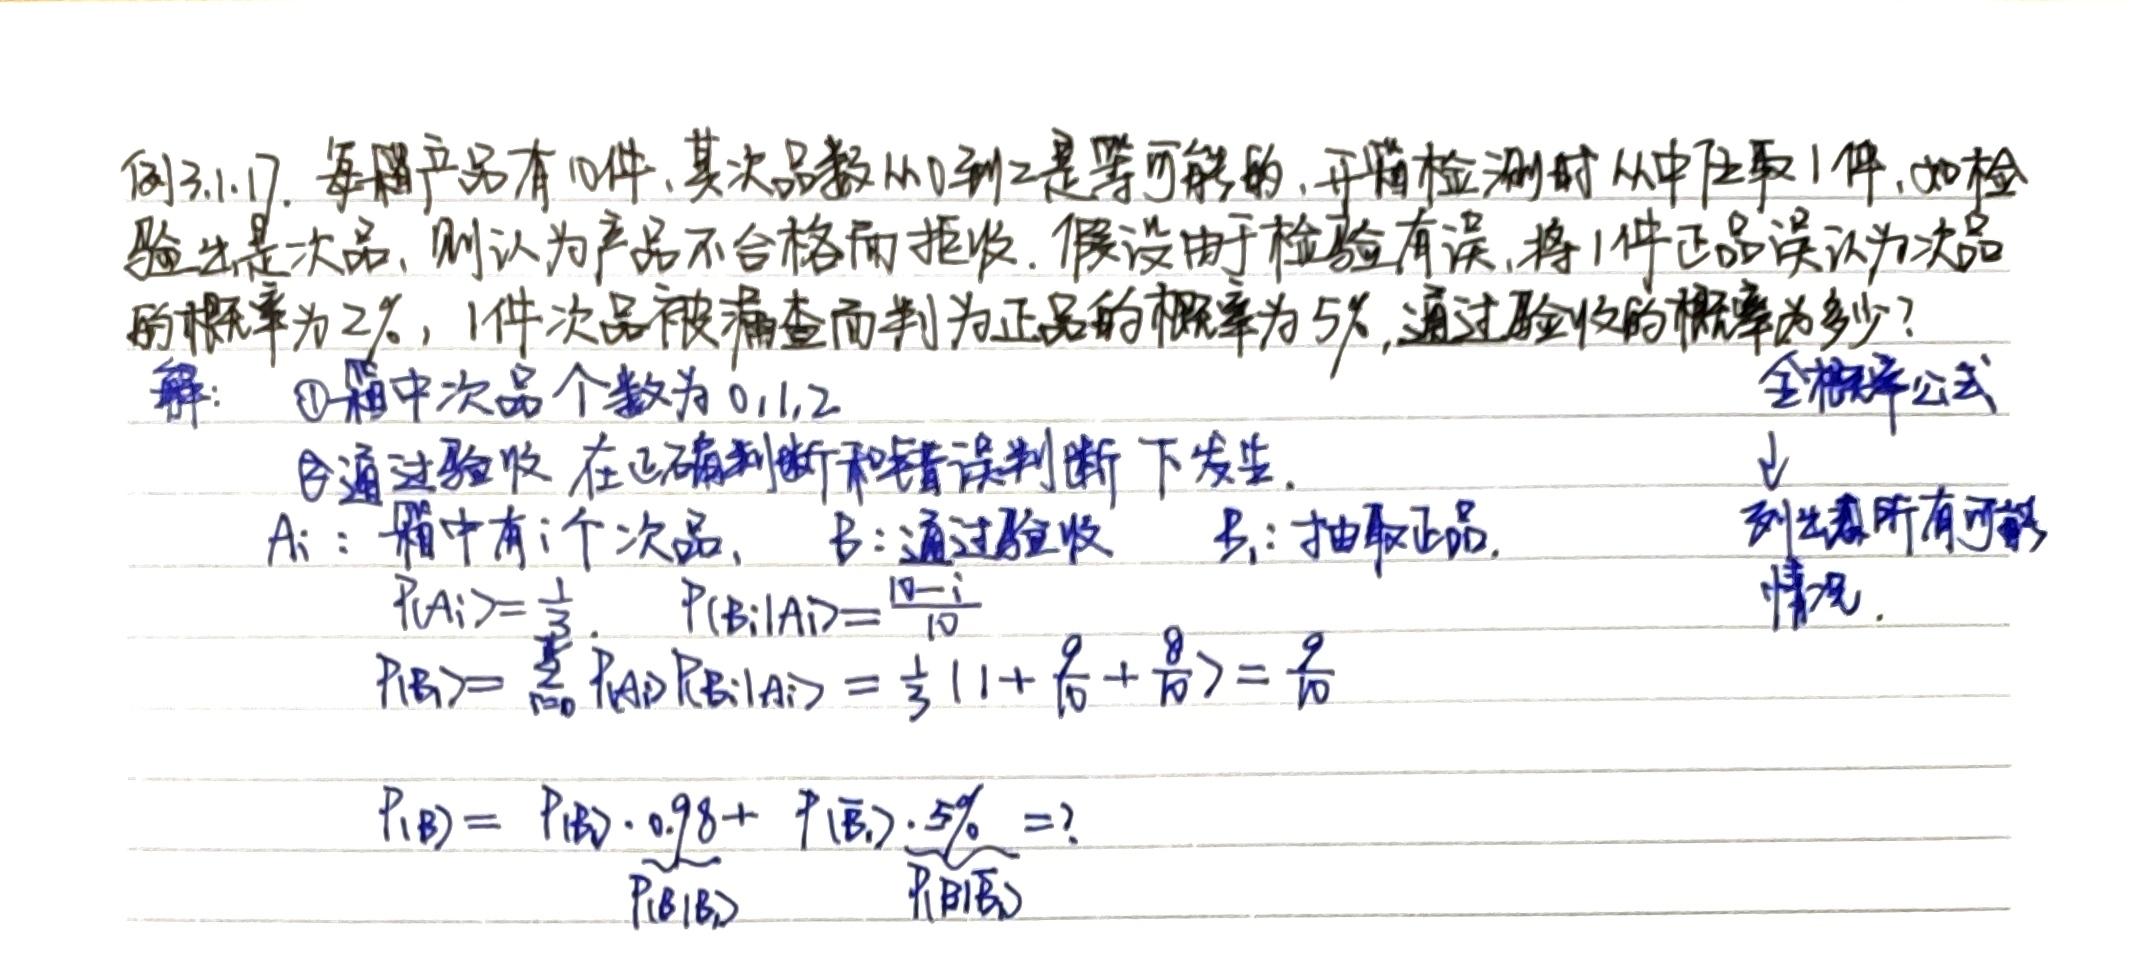 例3.1.17. 每箱产品有10件,其次品数从0到2是等可能的,开箱检测时从中任取1件,如检
验出是次品,则认为产品不合格而拒收.假设由于检验有误,将1件正品误认为次品
的概率为2%,1件次品被漏查而判为正品的概率为5%,通过验收的概率为多少?
解: ①箱中次品个数为0,1,2
全概率公式
②通过验收 在正确判断和错误判断 下发生.
↓
Ai: 箱中有i个次品, B:通过验收 B₁:抽取正品.
列出所有可能
P(Ai)=1/3. P(B₁|Ai)=(10-i)/10
情况.
P(B₁)=∑ᵢ₌₀² P(Ai)P(B₁|Ai)=1/3(1+9/10+8/10)=9/10
P(B)= P(B₁)·0.98+ P(B̅₁)·5% =?
P(B|B₁) P(B|B̅₁)